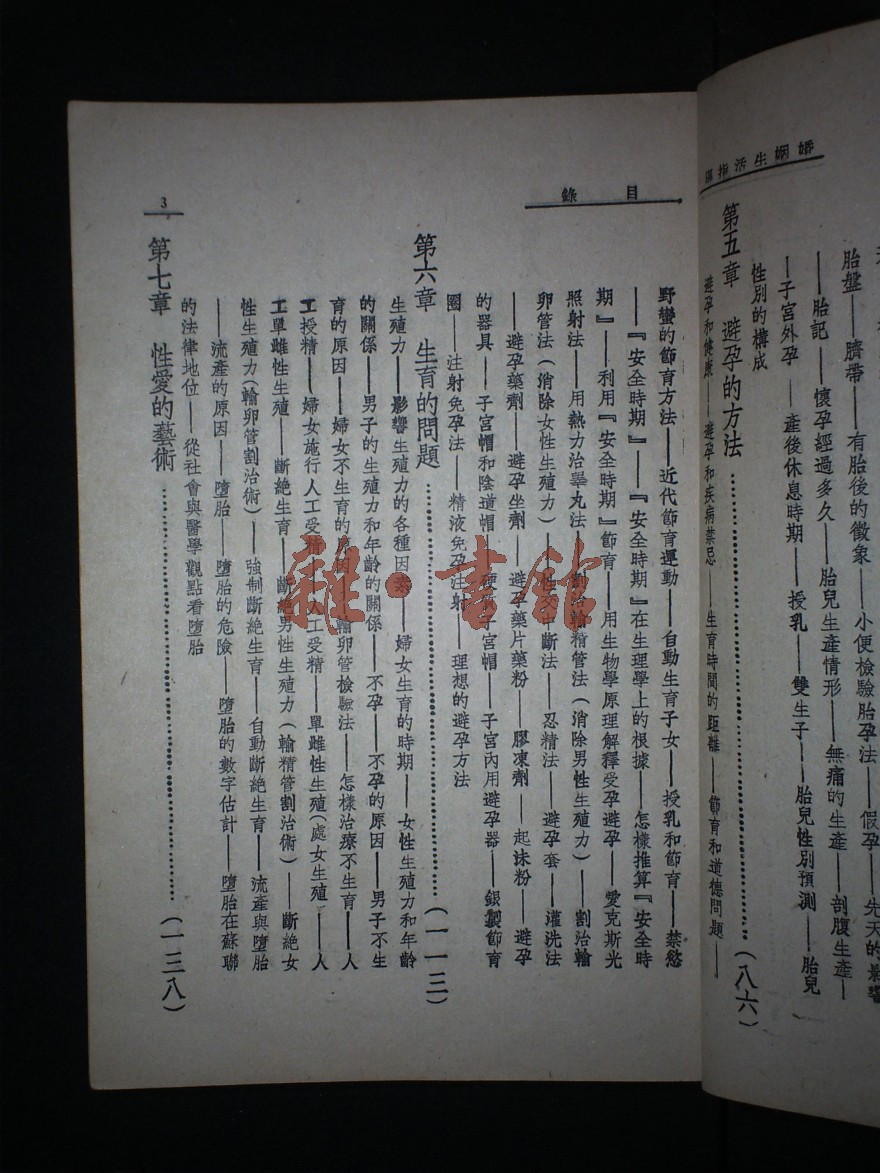 婚姻生活指導
胎盤——臍帶——有胎後的徵象——小便檢驗胎孕法——假孕——先天的影響
——胎記——懷孕經過多久——胎兒生產情形——無痛的生產——剖腹生產——
——子宮外孕——產後休息時期——授乳——雙生子——胎兒性別預測——胎兒
性別的構成
第五章 避孕的方法……(八六)
避孕和健康——避孕和疾病禁忌——生育時間的距離——節育和道德問題——
目錄
野蠻的節育方法——近代節育運動——自動生育子女——授乳和節育——禁慾
——『安全時期』——『安全時期』在生理學上的根據——怎樣推算『安全時
期』——利用『安全時期』節育——用生物學原理解釋受孕避孕——愛克斯光
照射法——用熱力治睪丸法——割治輸精管法(消除男性生殖力)——割治輸
卵管法(消除女性生殖力)——性交中斷法——忍精法——避孕套——灌洗法
——避孕藥劑——避孕坐劑——避孕藥片藥粉——膠凍劑——起沫粉——避孕
的器具——子宮帽和陰道帽——硬質子宮帽——子宮內用避孕器——銀製節育
圈——注射免孕法——精液免孕注射——理想的避孕方法
第六章 生育的問題……(一一三)
生殖力——影響生殖力的各種因素——婦女生育的時期——女性生殖力和年齡
的關係——男子的生殖力和年齡的關係——不孕——不孕的原因——男子不生
育的原因——婦女不生育的原因——輸卵管檢驗法——怎樣治療不生育——人
工授精——婦女施行人工受精——人工受精——單雌性生殖(處女生殖)——人
工單雌性生殖——斷絕生育——斷絕男性生殖力(輸精管割治術)——斷絕女
性生殖力(輸卵管割治術)——強制斷絕生育——自動斷絕生育——流產與墮胎
——流產的原因——墮胎——墮胎的危險——墮胎的數字估計——墮胎在蘇聯
的法律地位——從社會與醫學觀點看墮胎
第七章 性愛的藝術……(一三八)
3
雜·書館